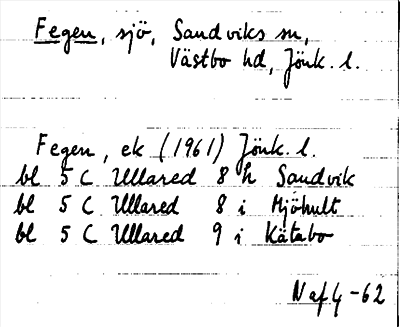 Fegen, sjö, Sandviks sn,
Västbo hd, Jönk. l.
Fegen, ek (1961) Jönk. l.
bl 5 C Ullared 8 h Sandvik
bl 5 C Ullared 8 i Mjöhult
bl 5 C Ullared 9 i Kätabo
Naf4-62